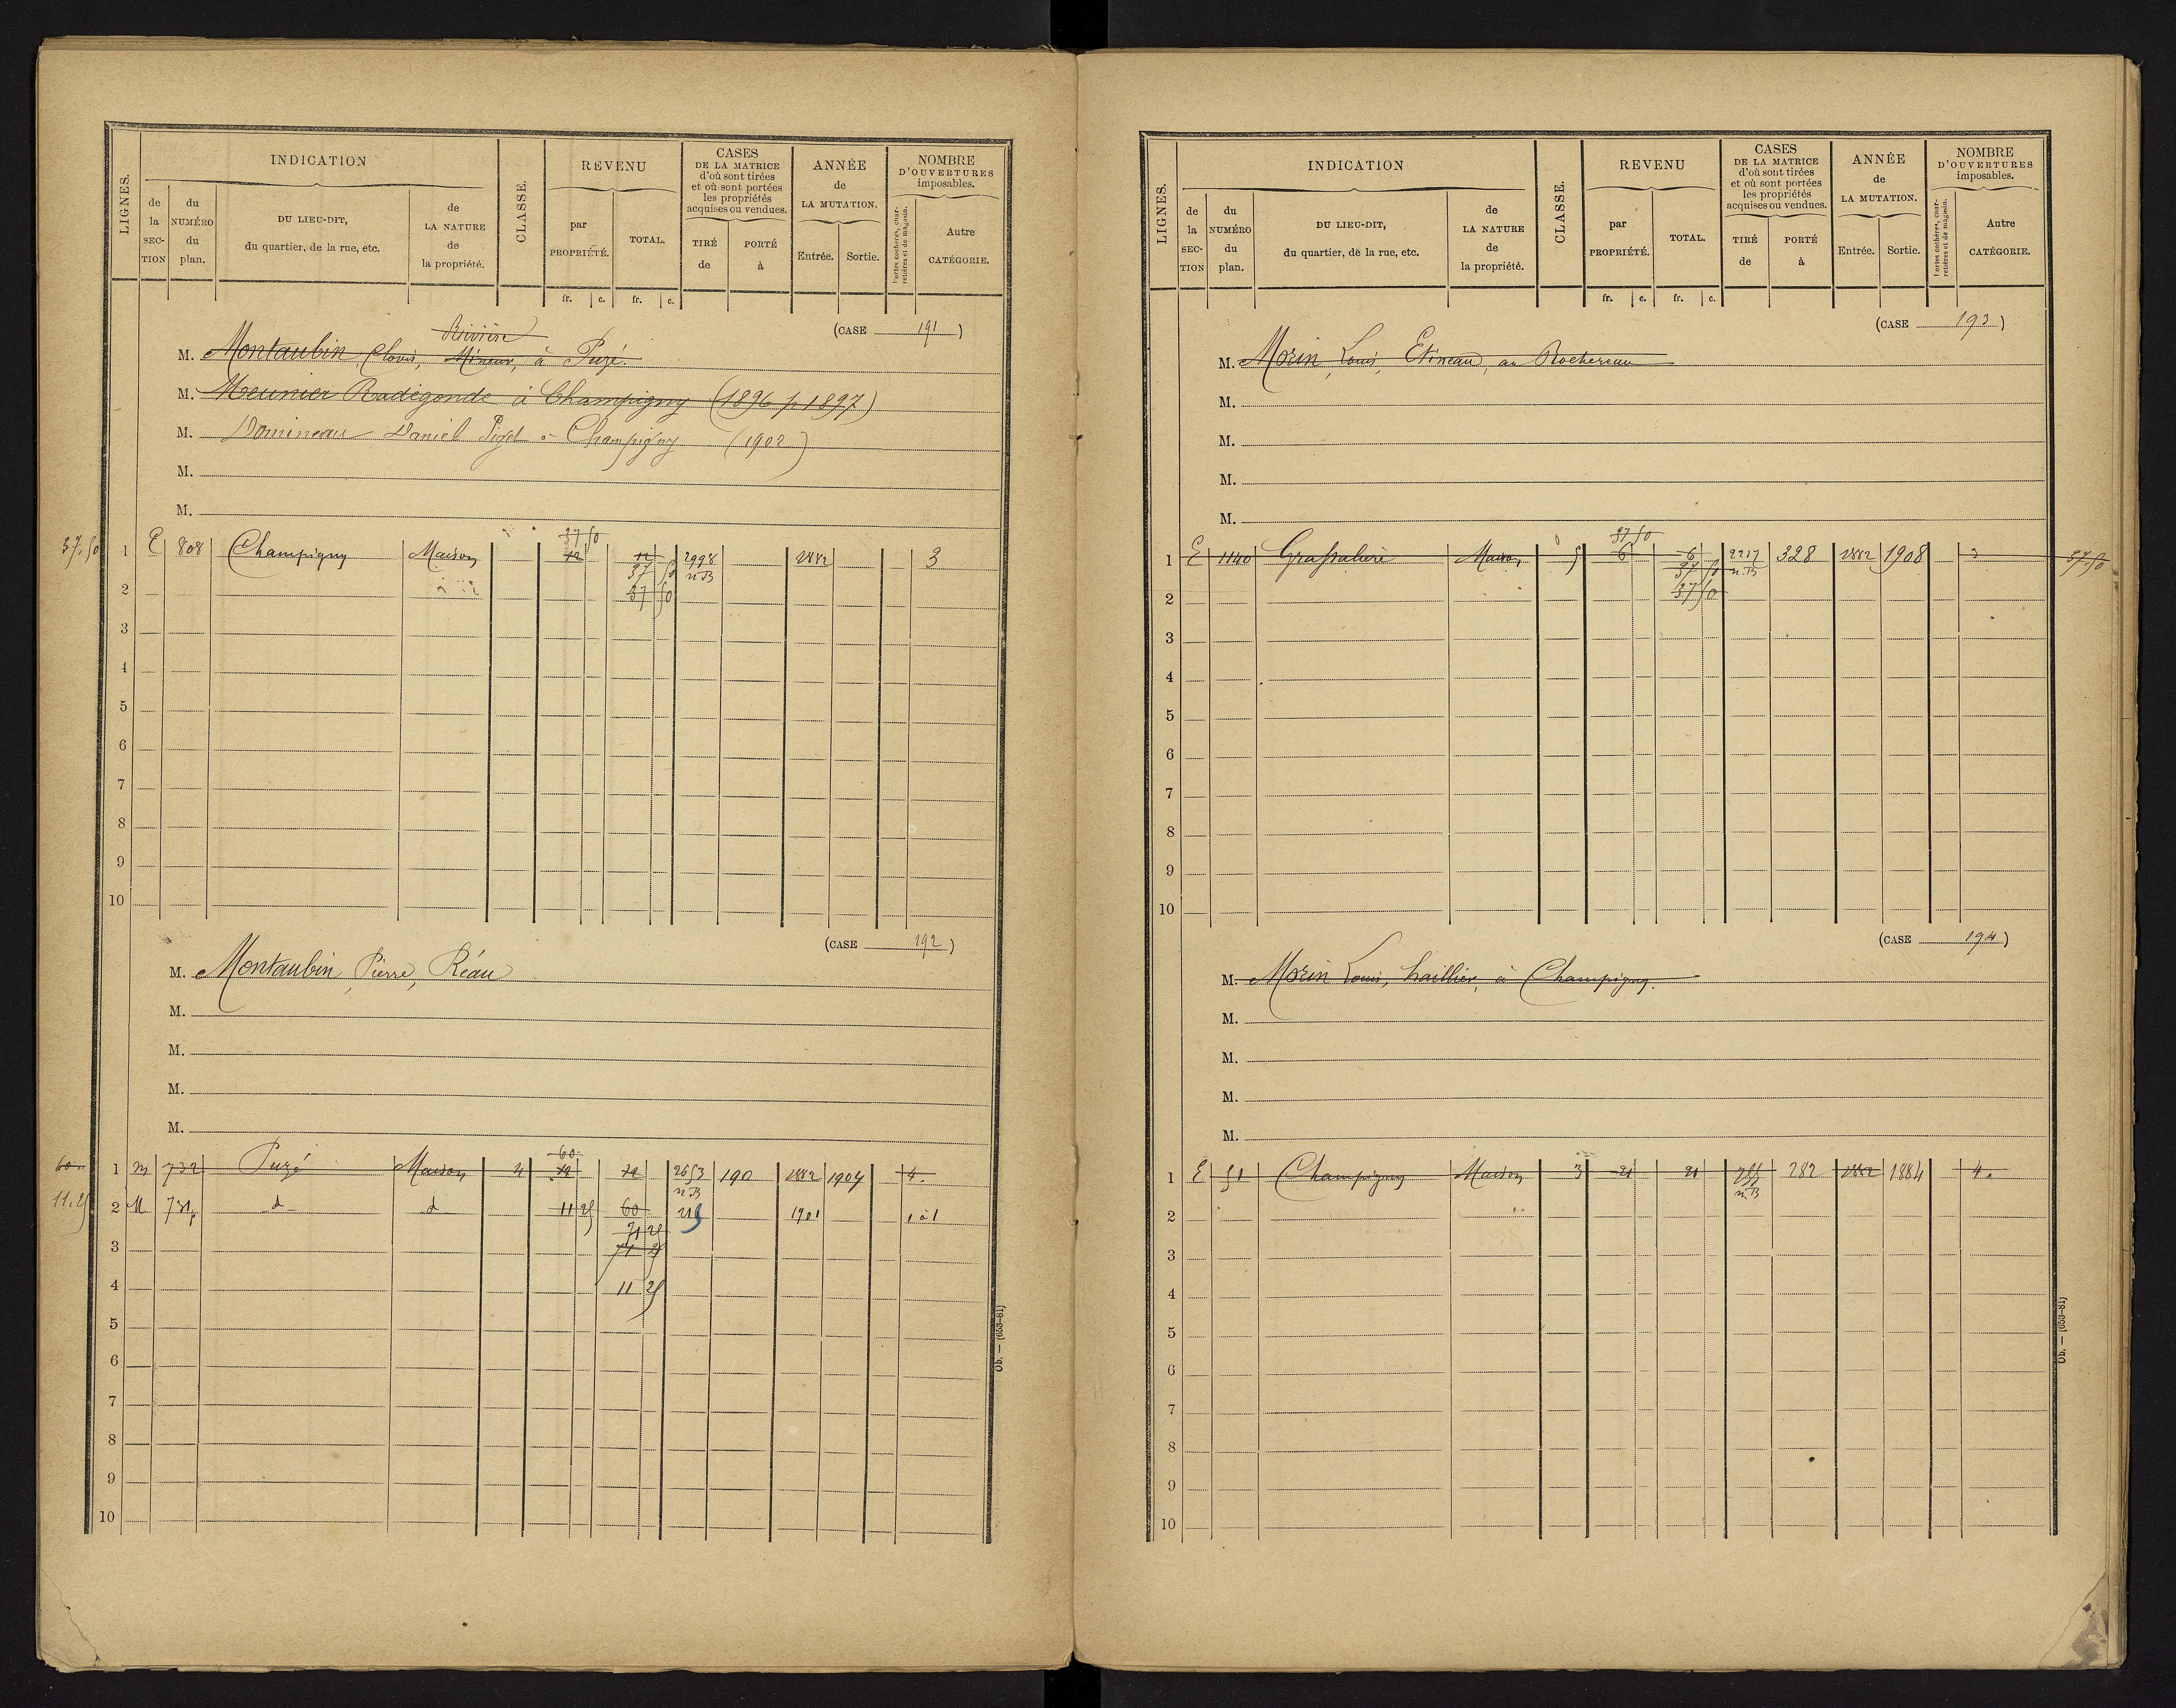 LIGNES.
INDICATION
de la SECTION
du NUMÉRO du plan.
DU LIEU-DIT, du quartier, de la rue, etc.
de LA NATURE de la propriété.
CLASSE.
REVENU
par PROPRIÉTÉ.
TOTAL.
fr. c. fr. c.
CASES DE LA MATRICE d'où sont tirées et où sont portées les propriétés acquises ou vendues.
TIRÉ de
PORTÉ à
ANNÉE de LA MUTATION.
Entrée. Sortie.
NOMBRE D'OUVERTURES imposables.
Portes cochères, charretières et de magasin.
Autre CATÉGORIE.
(CASE 191)
Rivière
M. Montaubin, Clovis, Mineur, à Puzé.
M. Meunier Radégonde à Champigny (1896 p 1897)
M. Domineau Daniel à Champigny (1902)
M.
M.
37 50
37.50 1 E 808 Champigny Maison 12 12 2998 1882 3
37 50 n.B
2 37 50
3
4
5
6
7
8
9
10
(CASE 192)
M. Montaubin, Pierre, Réau
M.
M.
M.
M.
60
60 1 M 732 Puzé Maison 4 12 12 2653 190 1882 1904 4.
n.B
11.25 2 M 731p d d 11 25 60 1901 1 à 1
71 25
3 71 25
4 11 25
5
6
7
8
9
10
Ob. — (653-81)
LIGNES.
INDICATION
de la SECTION
du NUMÉRO du plan.
DU LIEU-DIT, du quartier, de la rue, etc.
de LA NATURE de la propriété.
CLASSE.
REVENU
par PROPRIÉTÉ.
TOTAL.
fr. c. fr. c.
CASES DE LA MATRICE d'où sont tirées et où sont portées les propriétés acquises ou vendues.
TIRÉ de
PORTÉ à
ANNÉE de LA MUTATION.
Entrée. Sortie.
NOMBRE D'OUVERTURES imposables.
Portes cochères, charretières et de magasin.
Autre CATÉGORIE.
(CASE 193)
M. Morin, Louis, Etineau, au Rochereau
M.
M.
M.
M.
37 50
1 E 1140 Maison 5 6 6 2217 328 1882 1908 3 37.50
37 50 n.B
2 37 50
3
4
5
6
7
8
9
10
(CASE 194)
M. Morin Louis, à Champigny.
M.
M.
M.
M.
1 E 51 Champigny Maison 3 21 21 282 1882 1884 4.
n.B
2
3
4
5
6
7
8
9
10
Ob. — (653-81)